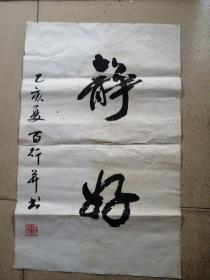 静好
乙亥夏百行并书